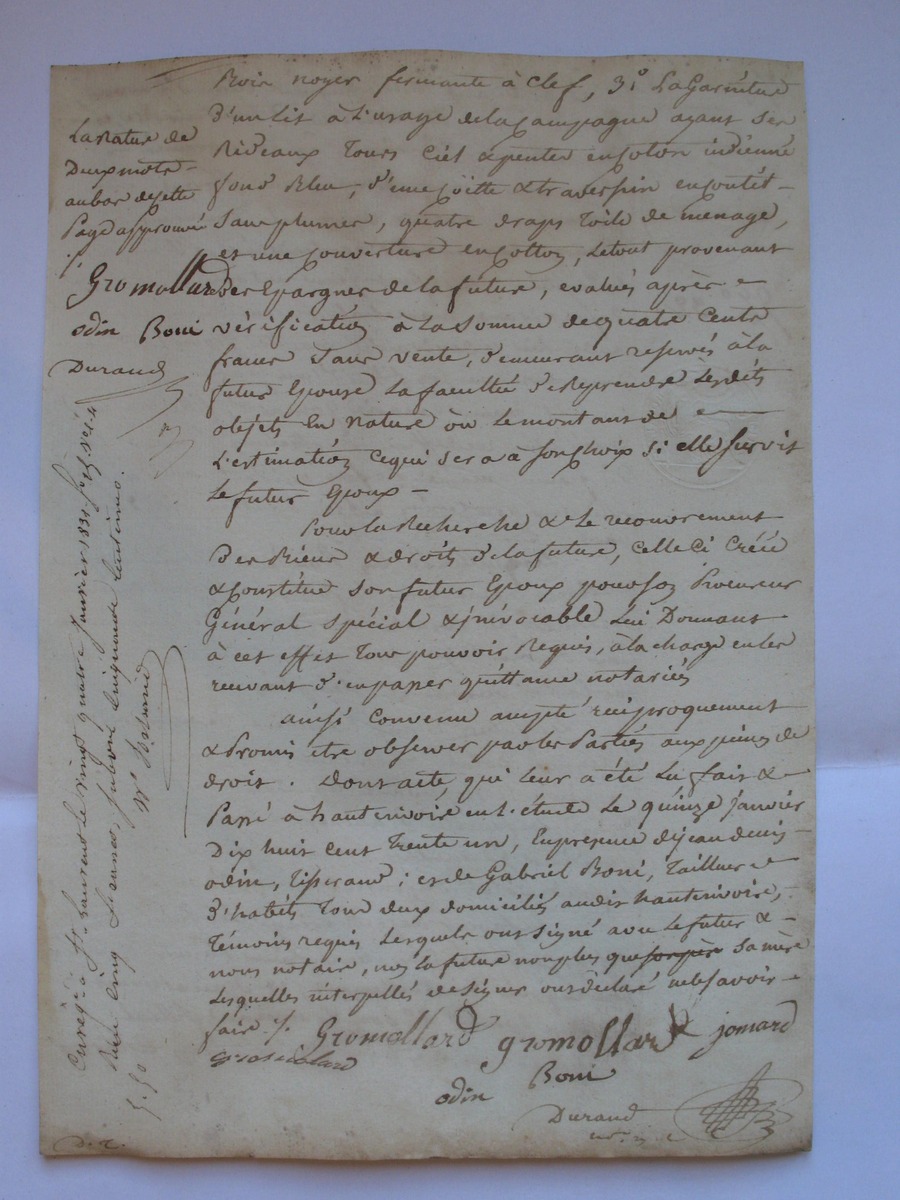 Bois noyer fermante à Clef, 3.º La Garniture
d'un Lit à L'usage de la Campagne ayant Ses
Rideaux tours Ciel & pentes en Coton indienne
fond Bleu, d'une Coitte & traversin en Coutil
Sans plumes, quatre draps toile de menage,
et une Couverture en Cotton, Le tout provenant
des Epargnes de la future, evalués après
vérification à la Somme de quatre Cents
francs Sans vente, demeurant reservés à la
future Epouse La faculté de Reprendre Lesdits
objets En Nature ou Le montant de
L'estimation Ce qui sera à son Choix Si elle Survit
Le futur Epoux
Pour la Recherche & Le recouvrement
Des Biens & droits de la future, Celle Ci Créée
& Constitue Son futur Epoux pour Son Procureur
Général spécial & irrévocable Lui Donnant
à cet effet tous pouvoirs Requis, à la charge en les
recevant d'en passer quittance notariées
ainsi Convenu accepté réciproquement
& Promis être observer par les Parties aux peines de
droit. Dont acte, qui leur a été Lu fait &
Passé à hauterivoire en l'étude Le quinze janvier
Dix huit Cent trente un, En presence de jean denis
odin, tisserand; et de Gabriel Boni, tailleur
d'habits tous deux domiciliés audit hauterivoire,
témoins requis Lesquels ont signé avec Le futur &
nous notaire, non la future non plus que son père Sa mère
Lesquelles interpellés de Signer ont déclaré ne le Savoir
faire ./.
Gromollard gromollard jomard
odin Boni
Durand
La Rature de
Deux mots
au bas de cette
Page approuvée
./.
Gromollard
odin Boni
Durand
Enrégé à St. Laurent le vingt quatre janvier 1831
cinq francs
5.50